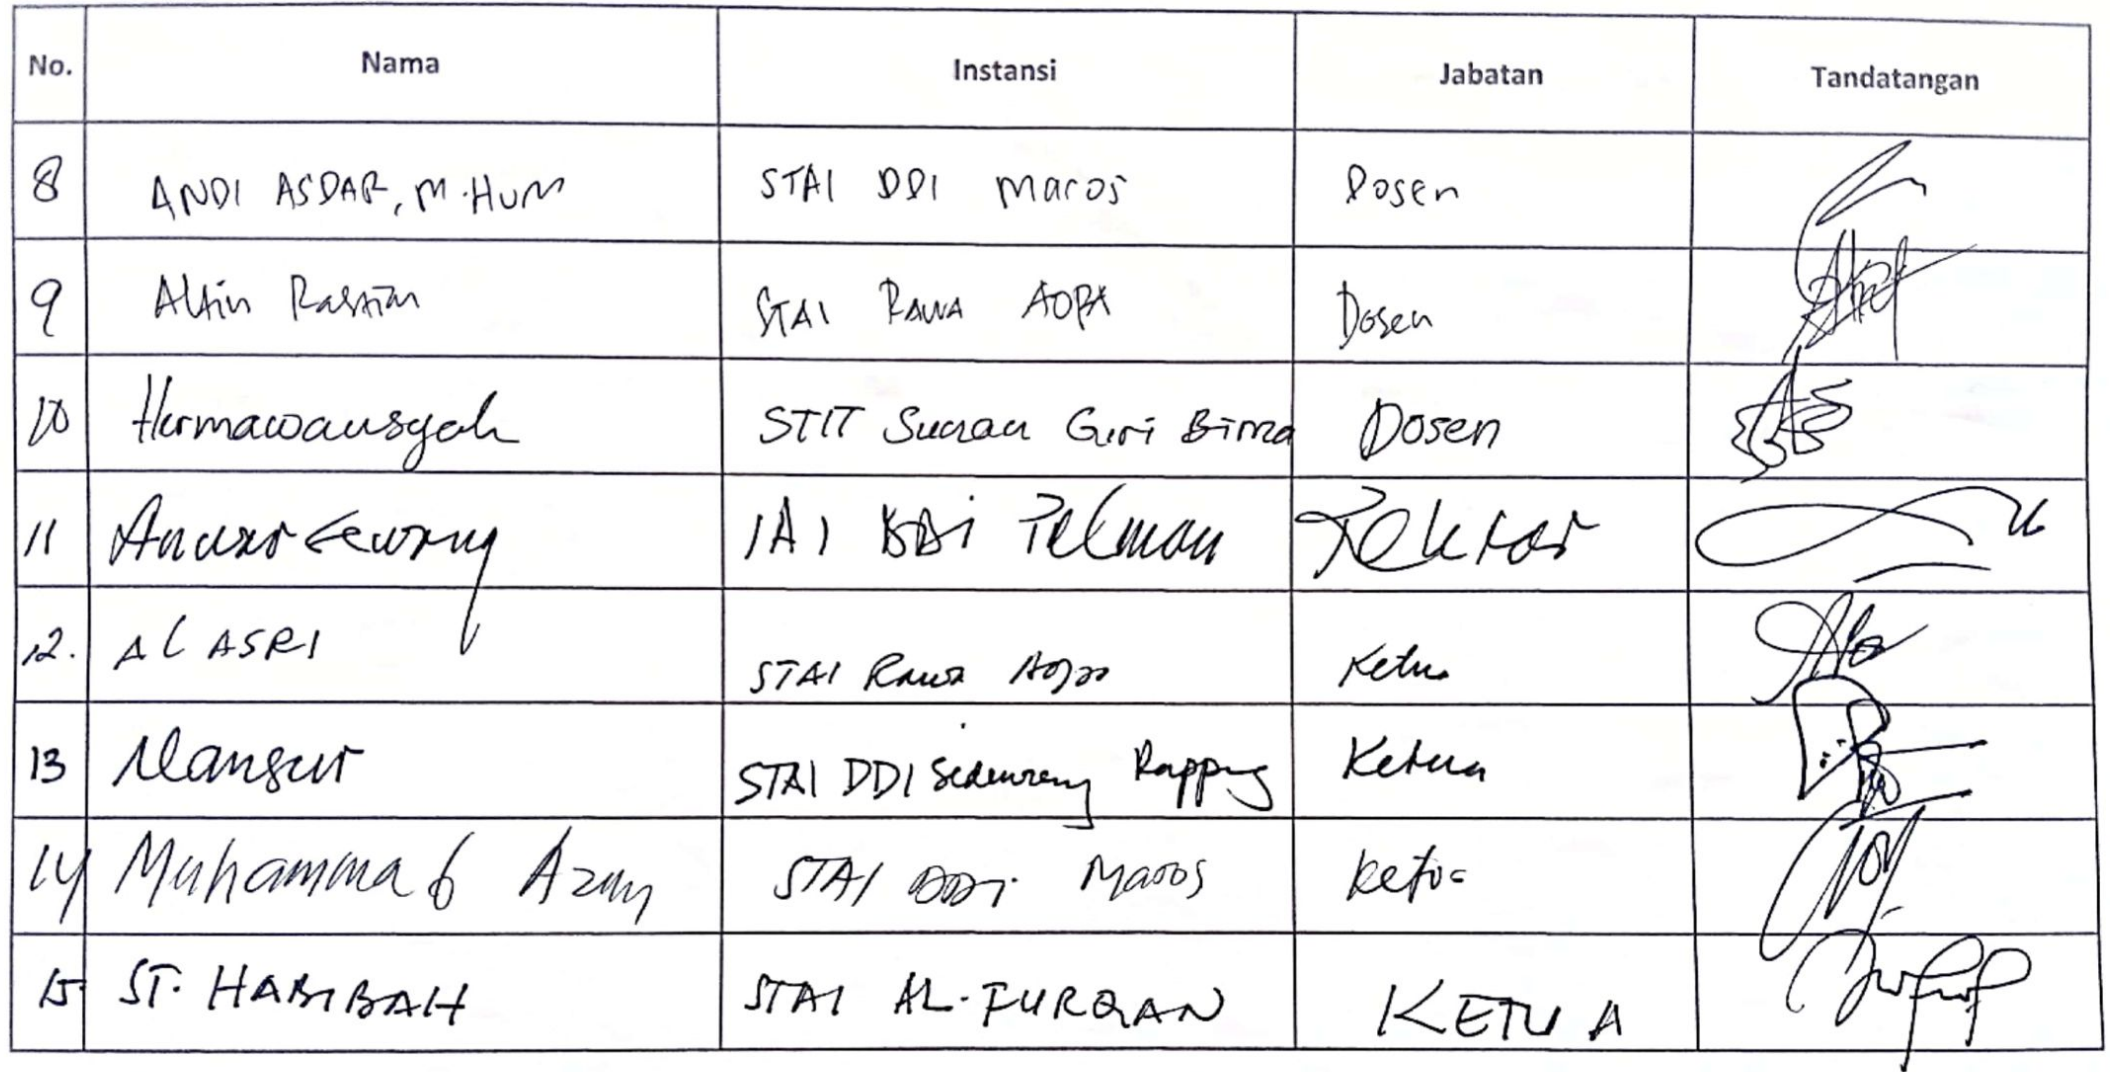 No. Nama Instansi Jabatan Tandatangan
8 ANDI ASDAR, M.HUM STAI DDI Maros Dosen
9 STAI RAWA AOPA Dosen
10 Hermawansyah STIT Sunan Giri Bima Dosen
11 Anwar Sewang IAI DDI Polman Rektor
12. AL ASRI STAI Rawa Aopa Ketua
13 Mansur STAI DDI Sidenreng Rappang Ketua
14 Muhammad STAI DDI Maros Ketua
15 ST. HABIBAH STAI AL-FURQAN KETUA